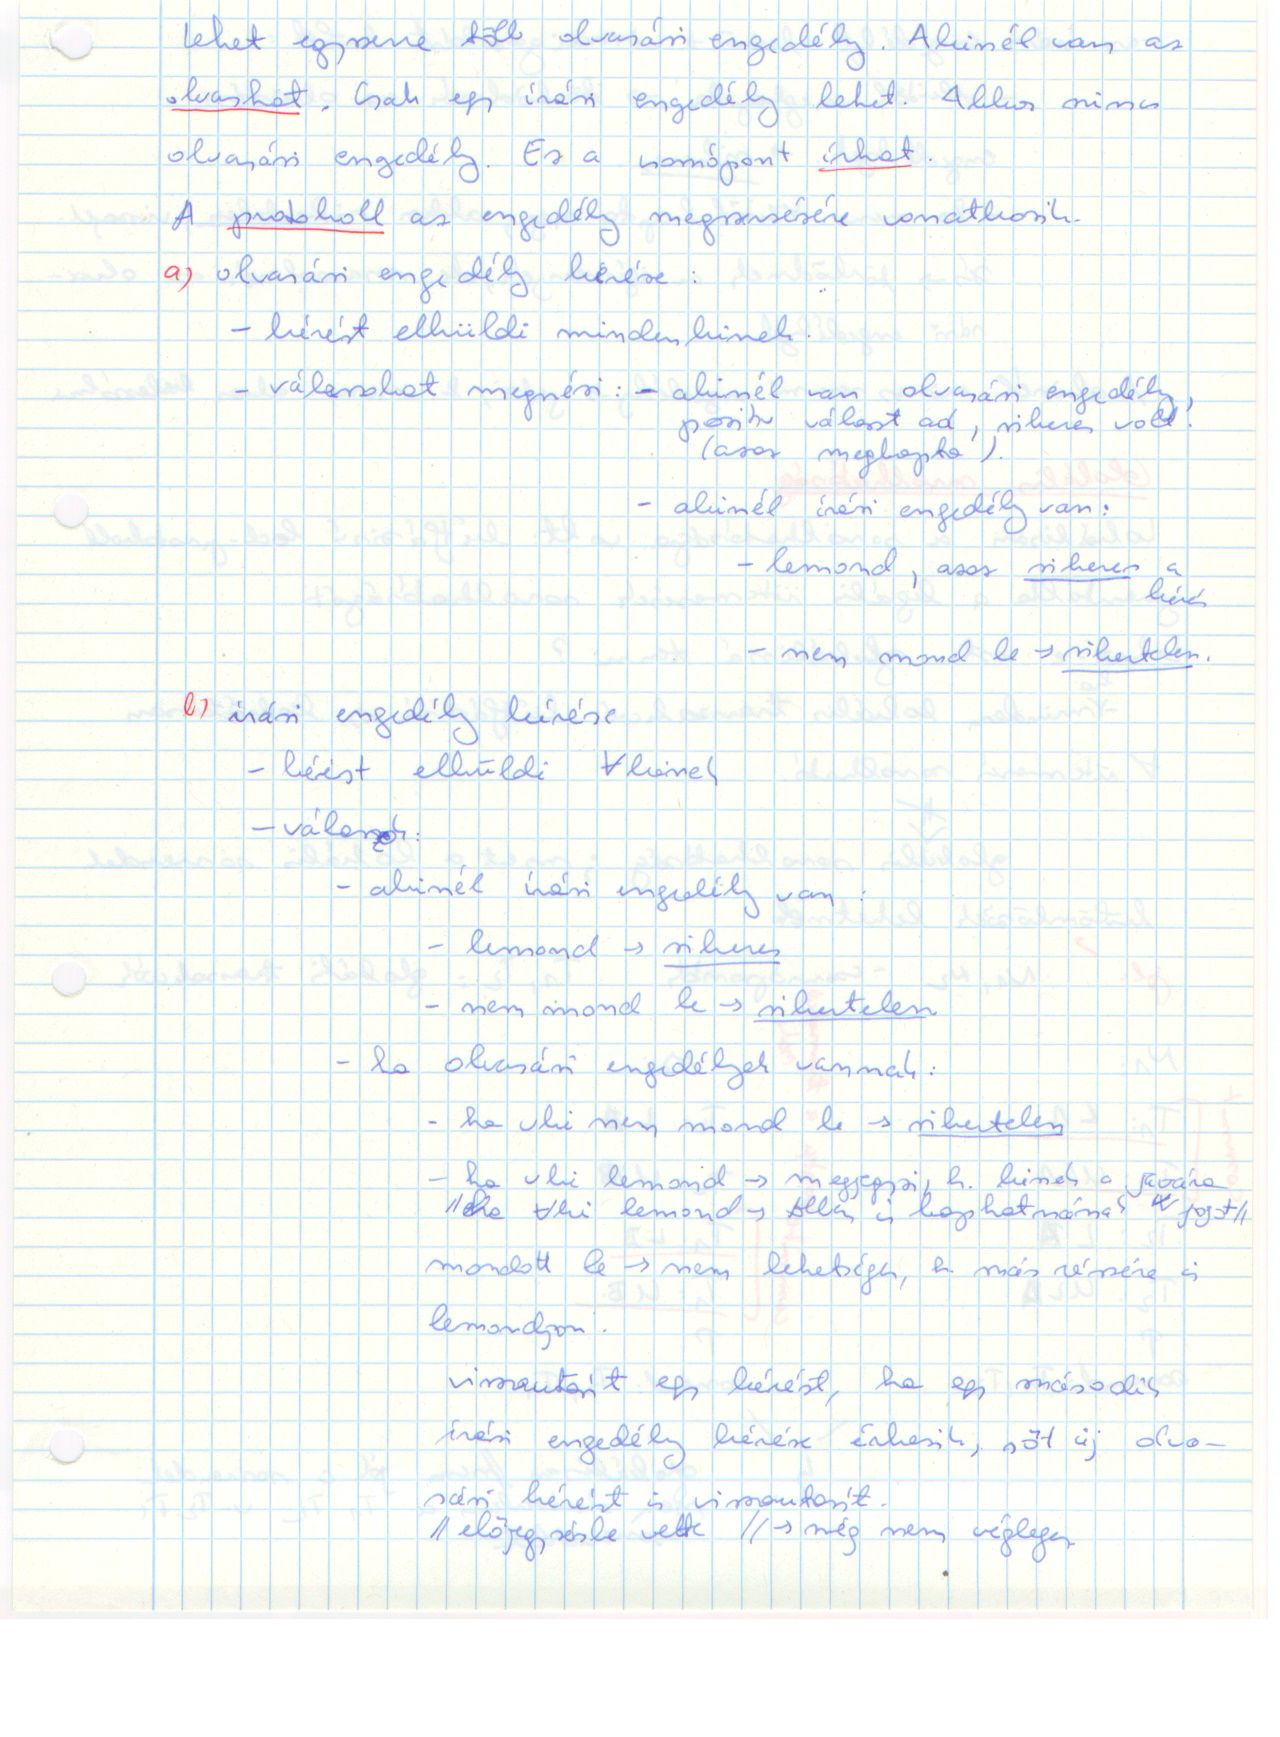 Lehet egyszerre több olvasási engedély. Akinél van az
olvashat. Csak egy írási engedély lehet. Akkor nincs
olvasási engedély. Ez a csomópont írhat.
A protokoll az engedély megszerzésére vonatkozik.
a) olvasási engedély kérése:
- kérést elküldi mindenkinek.
- válaszokat megnézi: - akinél van olvasási engedély,
pozitív választ ad, sikeres volt.
(azaz megkapta).
- akinél írási engedély van:
- lemond, azaz sikeres a
kérés
- nem mond le → sikertelen.
b) írási engedély kérése
- kérést elküldi ∀kinek
- válaszok:
- akinél írási engedély van:
- lemond → sikeres
- nem mond le → sikertelen
- ha olvasási engedélyek vannak:
- ha vki nem mond le → sikertelen
- ha vki lemond → megjegyzi, h. kinek a javára
// ha ∀ki lemond → is kaphatnának jogot //
mondott le → nem lehetséges, h. más részére is
lemondjon.
visszautasít egy kérést, ha egy második
írási engedély kérése érkezik, sőt új olva-
sási kérést is visszautasít.
// előjegyzésbe vette // → még nem végleges